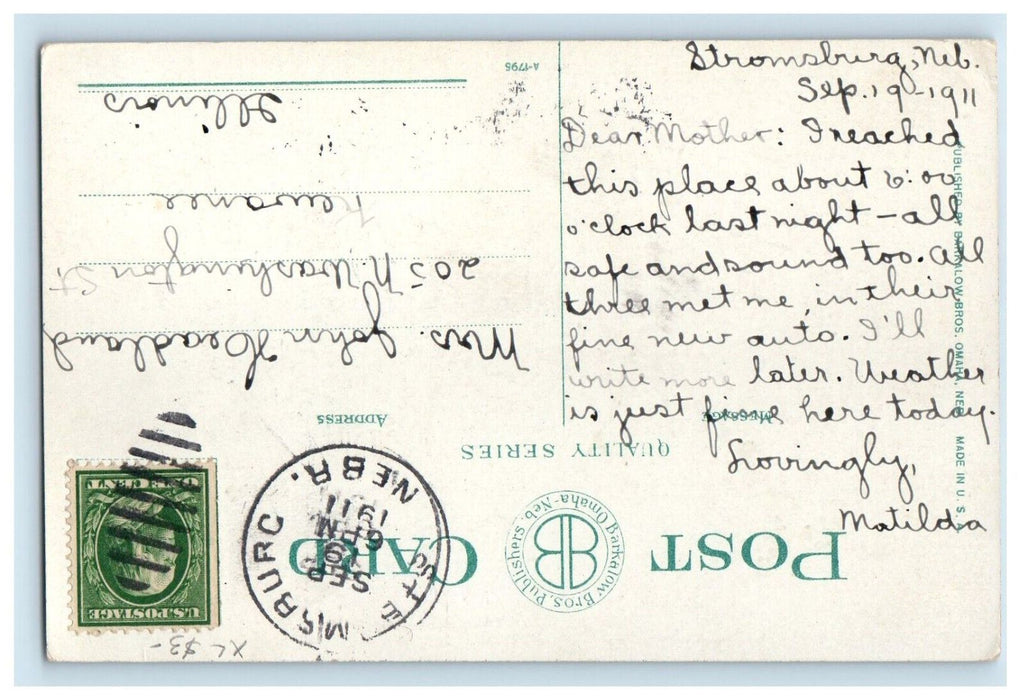 Stromsburg, Neb.
Sep. 19-1911
Dear Mother: I reached
this place about 6:00
o'clock last night - all
safe and sound too. All
three met me, in their
fine new auto. I'll
write more later. Weather
is just fine here today.
Lovingly,
Matilda
POST CARD
QUALITY SERIES
MESSAGE
ADDRESS
Mrs. John Headland
205 N Washington St.
Kewanee
Illinois
A-1795
PUBLISHED BY BARKALOW BROS. OMAHA, NEB. MADE IN U. S. A.
Barkalow Bros. Publishers.
Omaha-Neb.
SEP
19
6 PM
1911
NEBR.
U.S. POSTAGE
XL $3-